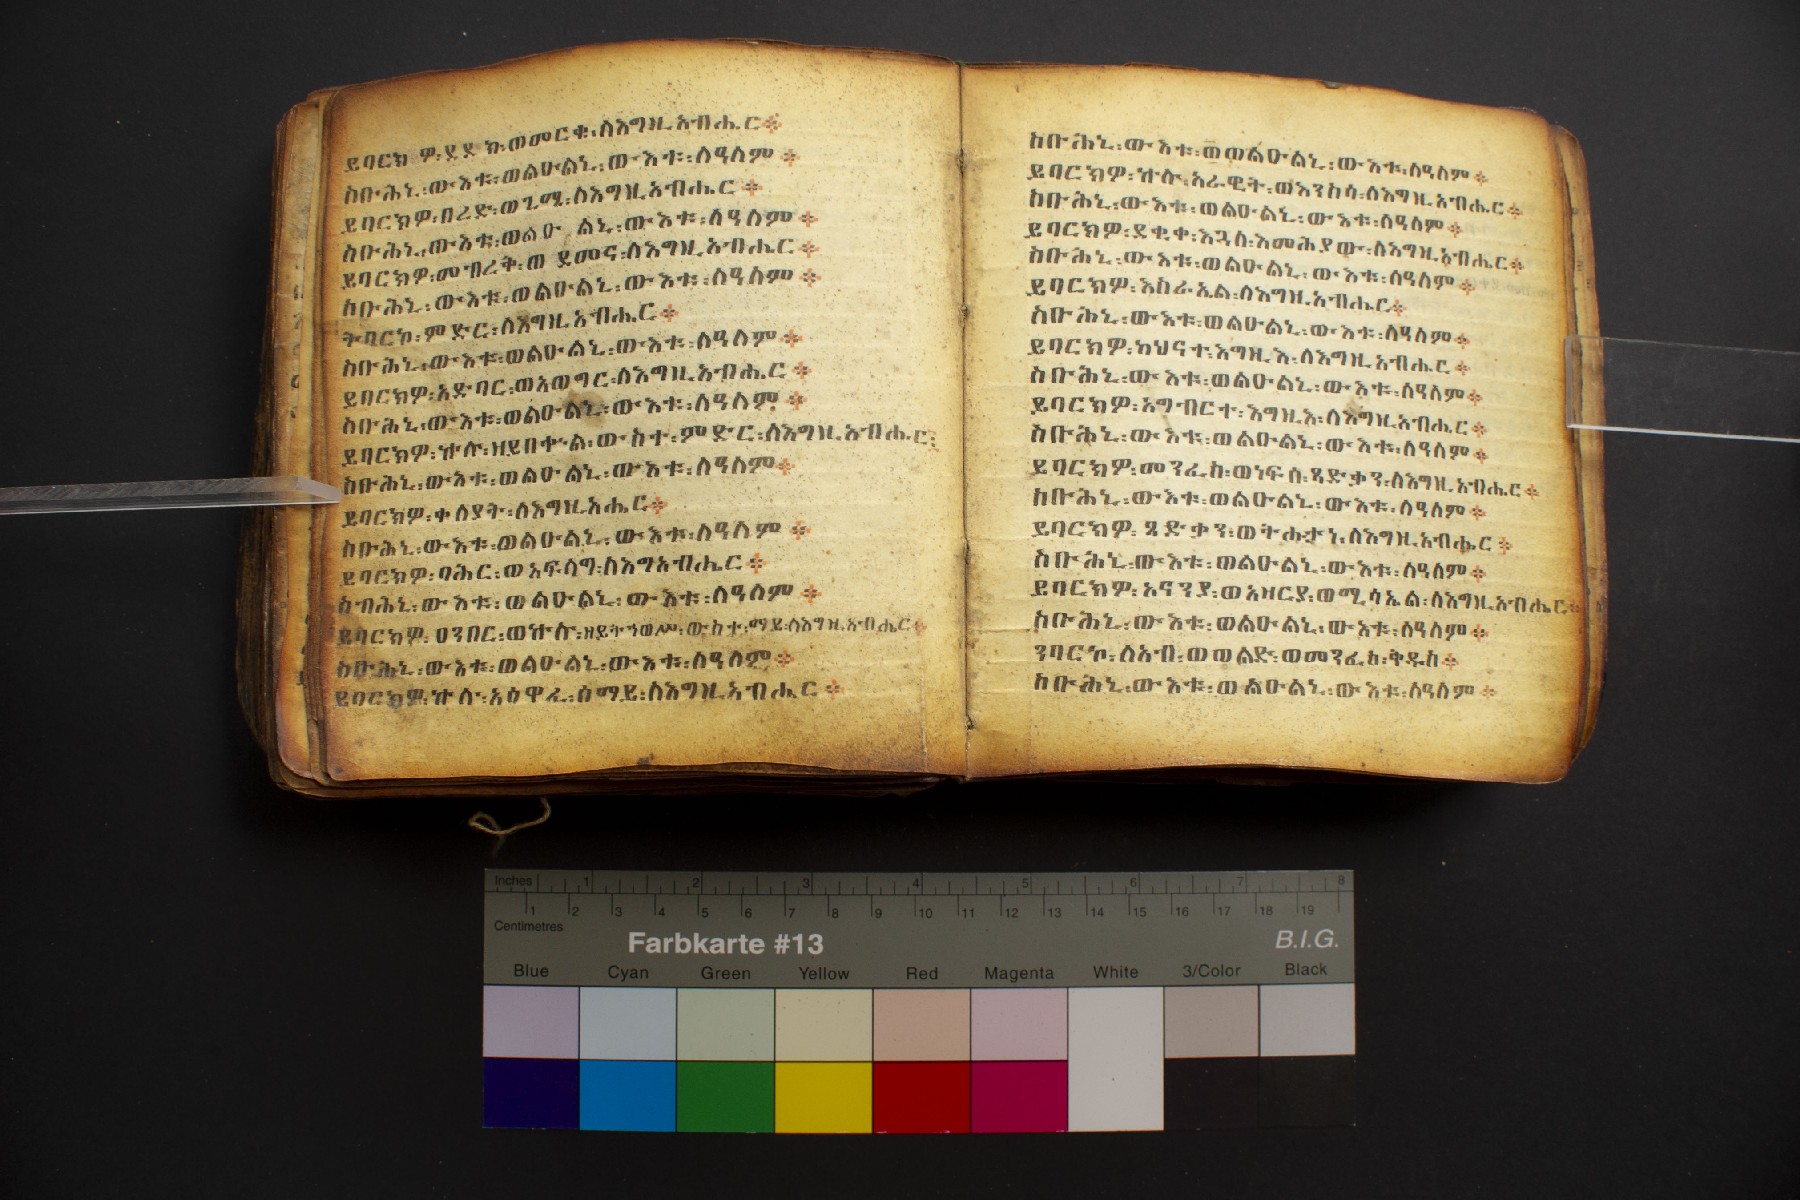 ይባርክዎ፡ደደክ፡ወመርቁ፡ለእግዚአብሔር
ስቡሕኒ፡ውእቱ፡ወልዑልኒ፡ውእቱ፡ለዓለም
ይባርክዎ፡በረድ፡ወጊሜ፡ለእግዚአብሔር
ስቡሕኒ፡ውእቱ፡ወልዑልኒ፡ውእቱ፡ለዓለም
ይባርክዎ፡መብረቅ፡ወደመና፡ለእግዚአብሔር
ስቡሕኒ፡ውእቱ፡ወልዑልኒ፡ውእቱ፡ለዓለም
ትባርኮ፡ምድር፡ለእግዚአብሔር
ስቡሕኒ፡ውእቱ፡ወልዑልኒ፡ውእቱ፡ለዓለም
ይባርክዎ፡አድባር፡ወአወግር፡ለእግዚአብሔር
ስቡሕኒ፡ውእቱ፡ወልዑልኒ፡ውእቱ፡ለዓለም
ይባርክዎ፡ኵሉ፡ዘይበቍል፡ውስተ፡ምድር፡ለእግዚአብሔር፤
ስቡሕኒ፡ውእቱ፡ወልዑልኒ፡ውእቱ፡ለዓለም
ይባርክዎ፡ቀለያት፡ለእግዚአሔር
ስቡሕኒ፡ውእቱ፡ወልዑልኒ፡ውእቱ፡ለዓለም
ይባርክዎ፡ባሕር፡ወአፍላግ፡ለእግአብሔር
ስብሕኒ፡ውእቱ፡ወልዑልኒ፡ውእቱ፡ለዓለም
ይባርክዎ፡ዐንበር፡ወኵሉ፡ዘይትኀወሥ፡ውስተ፡ማይ፡ለእግዚአብሔር
ስቡሕኒ፡ውእቱ፡ወልዑልኒ፡ውእቱ፡ለዓለም
ይባርክዎ፡ኵሉ፡አዕዋፈ፡ሰማይ፡ለእግዚአብሔር
ስቡሕኒ፡ውእቱ፡ወወልዑልኒ፡ውእቱ፡ለዓለም
ይባርክዎ፡ኵሉ፡አራዊት፡ወእንስሳ፡ለእግዚአብሔር
ስቡሕኒ፡ውእቱ፡ወልዑልኒ፡ውእቱ፡ለዓለም
ይባርክዎ፡ደቂቀ፡እጓለ፡እመሕያው፡ለእግዚአብሔር
ስቡሕኒ፡ውእቱ፡ወልዑልኒ፡ውእቱ፡ለዓለም
ይባርክዎ፡እስራኤል፡ለእግዚአብሔር
ስቡሕኒ፡ውእቱ፡ወልዑልኒ፡ውእቱ፡ለዓለም
ይባርክዎ፡ካህናተ፡እግዚእ፡ለእግዚአብሔር
ስቡሕኒ፡ውእቱ፡ወልዑልኒ፡ውእቱ፡ለዓለም
ይባርክዎ፡አግብርተ፡እግዚእ፡ለእግዚአብሔር
ስቡሕኒ፡ውእቱ፡ወልዑልኒ፡ውእቱ፡ለዓለም
ይባርክዎ፡መንፈስ፡ወነፍሰ፡ጻድቃን፡ለእግዚአብሔር
ስቡሕኒ፡ውእቱ፡ወልዑልኒ፡ውእቱ፡ለዓለም
ይባርክዎ፡ጻድቃን፡ወትሑታነ፡ለእግዚአብሔር
ስቡሕኒ፡ውእቱ፡ወልዑልኒ፡ውእቱ፡ለዓለም
ይባርክዎ፡አናንያ፡ወአዛርያ፡ወሚሳኤል፡ለእግዚአብሔር
ስቡሕኒ፡ውእቱ፡ወልዑልኒ፡ውእቱ፡ለዓለም
ንባርኮ፡ለአብ፡ወወልድ፡ወመንፈስ፡ቅዱስ
ስቡሕኒ፡ውእቱ፡ወልዑልኒ፡ውእቱ፡ለዓለም
Inches 1 2 3 4 5 6 7 8
1 2 3 4 5 6 7 8 9 10 11 12 13 14 15 16 17 18 19
Centimetres
Farbkarte #13 B.I.G.
Blue Cyan Green Yellow Red Magenta White 3/Color Black